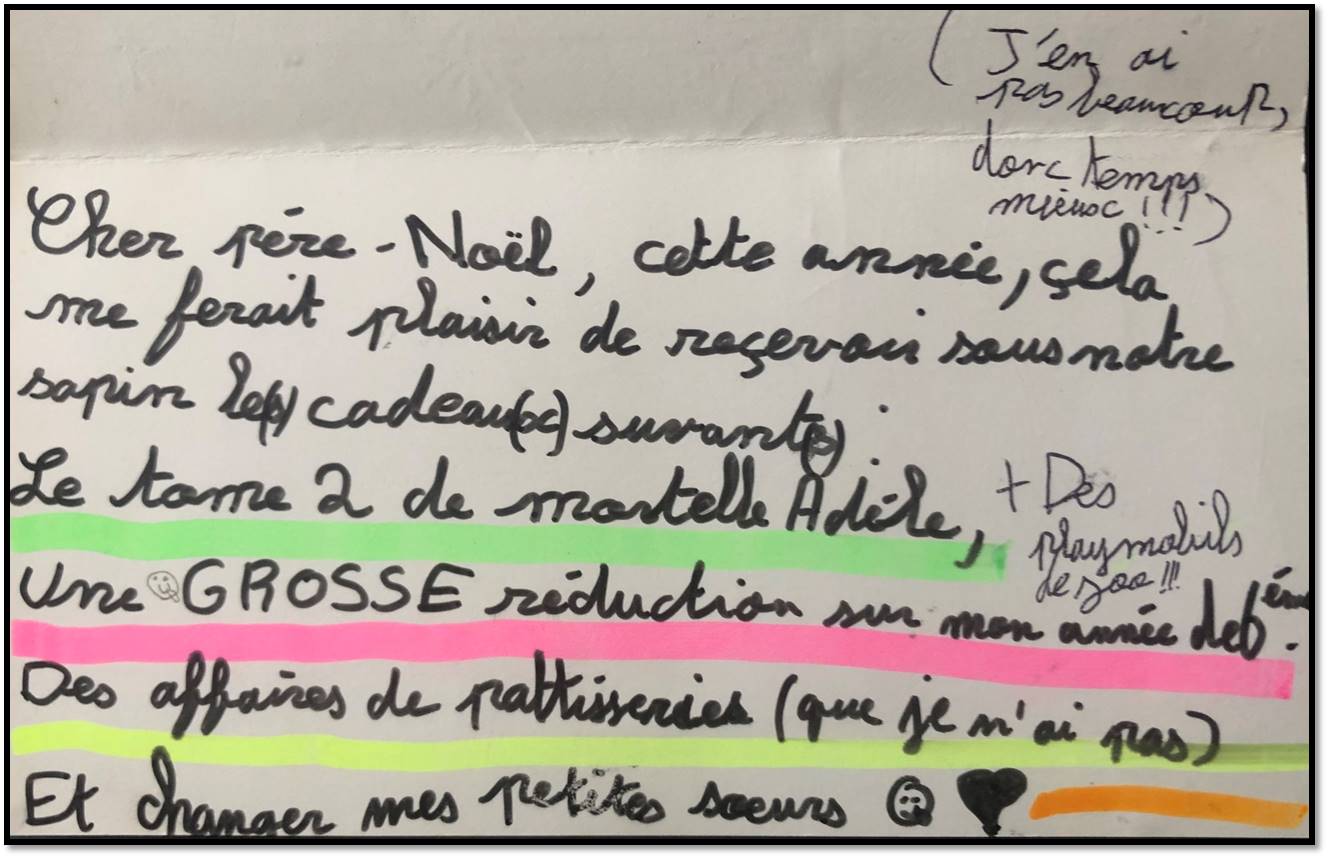 (J'en ai
pas beaucoup,
donc temps
mieux !!!)
Cher père-Noël, cette année, çela
me ferait plaisir de reçevoir sous notre
sapin le(s) cadeau(x) suivant(s) :
Le tome 2 de mortelle Adèle,
+ Des
playmobils
de zoo !!!
Une GROSSE réduction sur mon année de 6ème.
Des affaires de pattisseries (que je n'ai pas)
Et changer mes petites soeurs